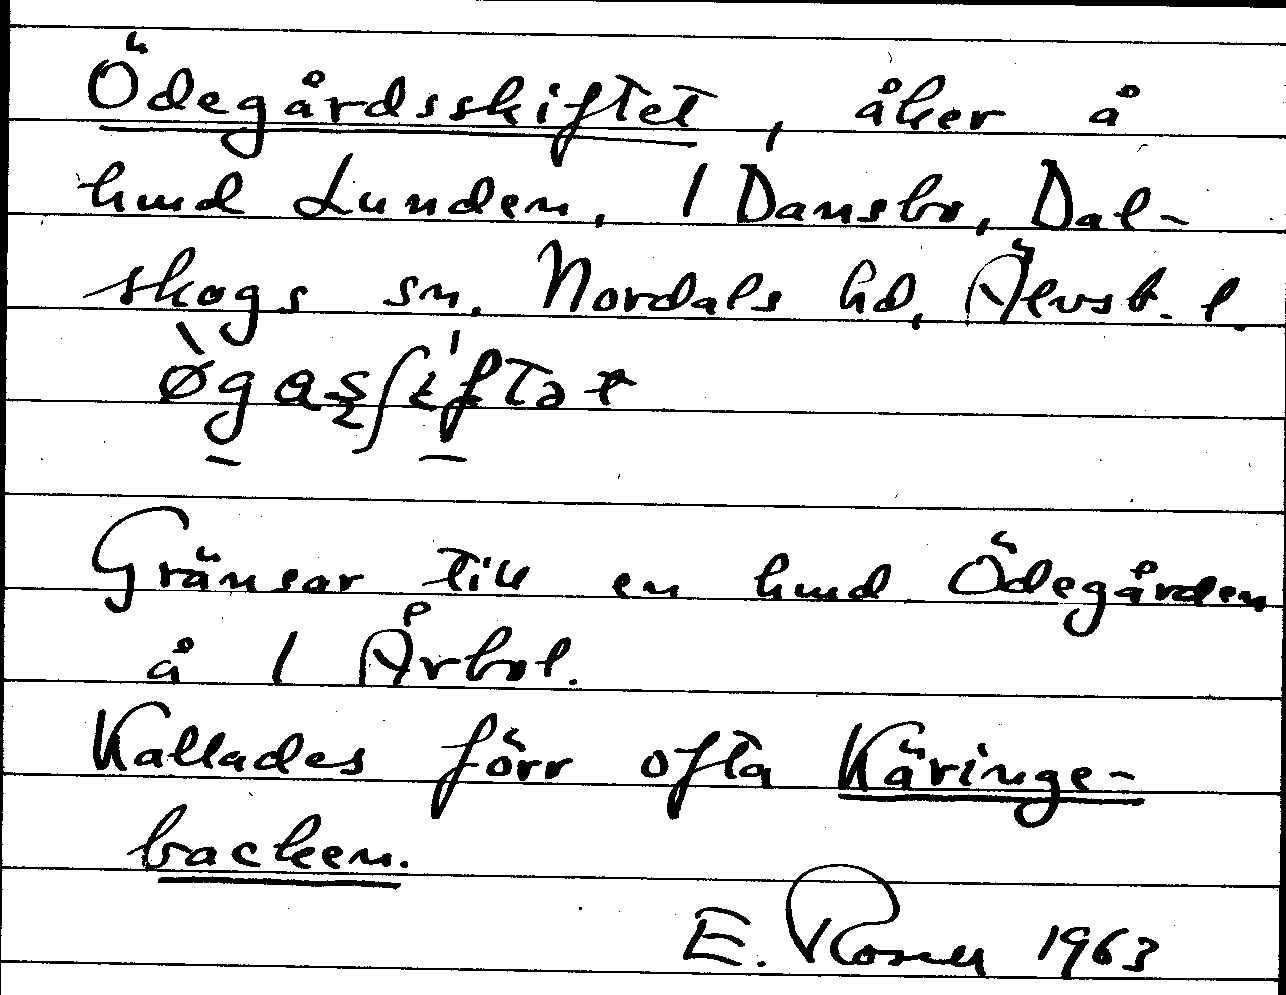 Ödegårdsskiftet, åker å
hmd Lunden, 1 Dansbo, Dal-
skogs sn. Nordals hd, Älvsb. l.
Gränsar till en hmd Ödegården
å 1 Årbol.
Kallades förr ofta Käringe-
backen.
E. Rosell 1963